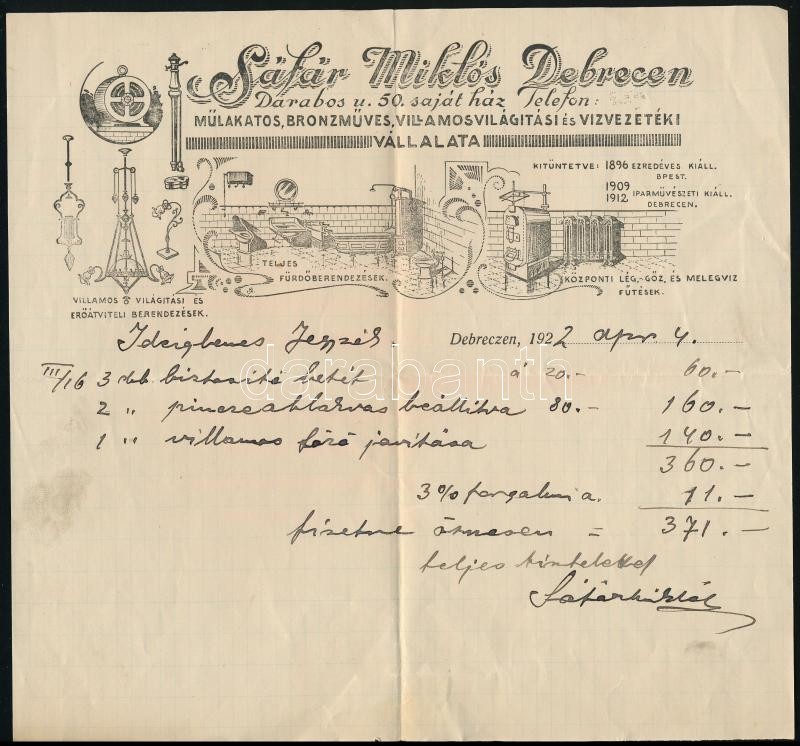 Sáfár Miklós Debrecen
Darabos u. 50. saját ház Telefon:
MŰLAKATOS, BRONZMŰVES, VILLAMOSVILÁGITÁSI ÉS VIZVEZETÉKI
VÁLLALATA
KITÜNTETVE: 1896 EZREDÉVES KIÁLL.
BPEST.
1909
1912 IPARMŰVÉSZETI KIÁLL.
DEBRECEN.
TELJES
FÜRDŐBERENDEZÉSEK.
KÖZPONTI LÉG,-GŐZ, ÉS MELEGVIZ
FŰTÉSEK.
VILLAMOS VILÁGITÁSI ÉS
ERŐÁTVITELI BERENDEZÉSEK.
Debreczen, 1922 apr 4.
III/16 3 db biztositó betét á 20.- 60.-
2 " pinczeablakvas beállitva 80.- 160.-
1 " villamos főző javitása 140.-
360.-
3% forgalmi a. 11.-
fizetve összesen = 371.-
teljes tisztelettel
Sáfár Miklós
darabanth